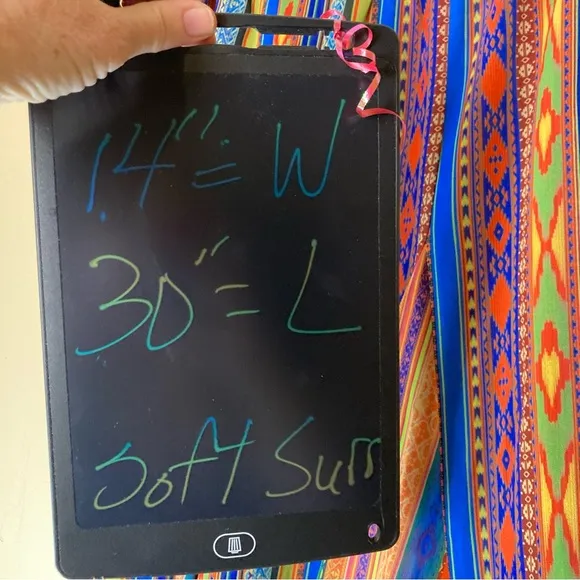 14" = W
30" = L
Soft Surr